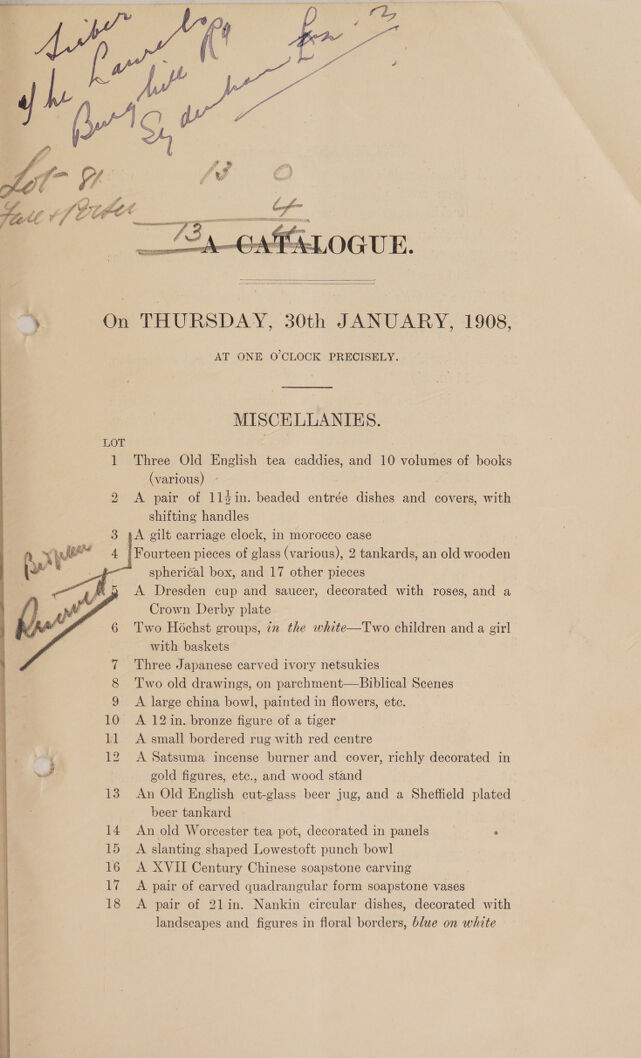 The Laurels
Burghill Rd
Sydenham
Lot 81 13 0
4
13 4
A CATALOGUE.
On THURSDAY, 30th JANUARY, 1908,
AT ONE O'CLOCK PRECISELY.
MISCELLANIES.
LOT
1 Three Old English tea caddies, and 10 volumes of books
(various)
2 A pair of 11½in. beaded entrée dishes and covers, with
shifting handles
3 A gilt carriage clock, in morocco case
4 Fourteen pieces of glass (various), 2 tankards, an old wooden
spherical box, and 17 other pieces
Reserved
5 A Dresden cup and saucer, decorated with roses, and a
Crown Derby plate
6 Two Höchst groups, in the white—Two children and a girl
with baskets
7 Three Japanese carved ivory netsukies
8 Two old drawings, on parchment—Biblical Scenes
9 A large china bowl, painted in flowers, etc.
10 A 12 in. bronze figure of a tiger
11 A small bordered rug with red centre
12 A Satsuma incense burner and cover, richly decorated in
gold figures, etc., and wood stand
13 An Old English cut-glass beer jug, and a Sheffield plated
beer tankard
14 An old Worcester tea pot, decorated in panels
15 A slanting shaped Lowestoft punch bowl
16 A XVII Century Chinese soapstone carving
17 A pair of carved quadrangular form soapstone vases
18 A pair of 21 in. Nankin circular dishes, decorated with
landscapes and figures in floral borders, blue on white